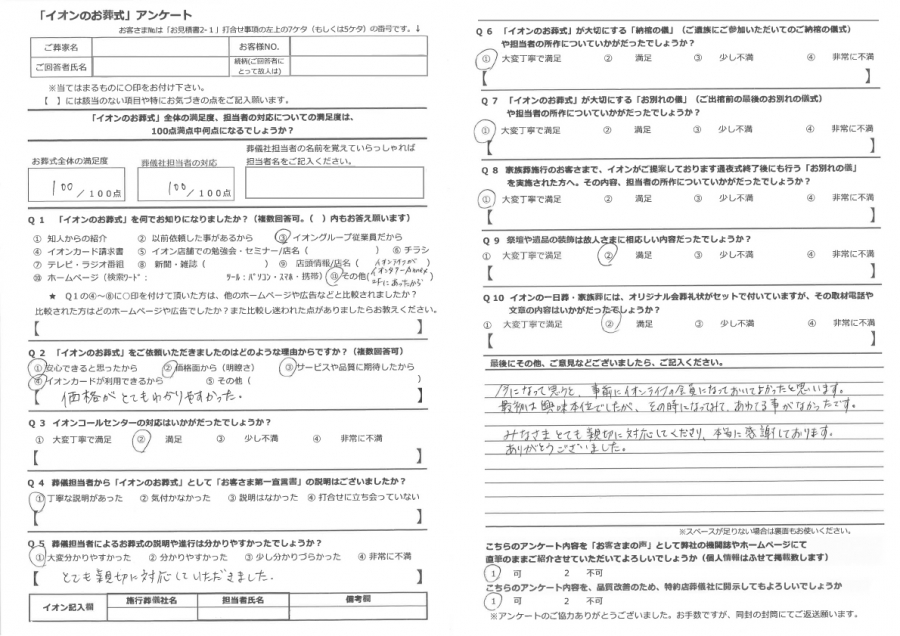 「イオンのお葬式」アンケート
お客さま№は「お見積書2-1」打合せ事項の左上の7ケタ（もしくは5ケタ）の番号です。↓
ご葬家名
お客様NO.
ご回答者氏名
続柄(ご回答者にとって故人は)
※当てはまるものに○印をお付け下さい。
【　】には該当のない項目や特にお気づきの点をご記入願います。
「イオンのお葬式」全体の満足度、担当者の対応についての満足度は、
100点満点中何点になるでしょうか？
葬儀社担当者の名前を覚えていらっしゃれば
お葬式全体の満足度
葬儀社担当者の対応
担当者名をご記入ください。
100 /100点
100 /100点
Q 1　「イオンのお葬式」を何でお知りになりましたか？（複数回答可。（　）内もお答え願います）
① 知人からの紹介　② 以前依頼した事があるから　③ イオングループ従業員だから
④ イオンカード請求書　⑤ イオン店舗での勉強会・セミナー/店名（　）⑥ チラシ
⑦ テレビ・ラジオ番組　⑧ 新聞・雑誌（　）⑨ 店頭情報/店名（　）
⑩ ホームページ（検索ワード：　ツール：パソコン・スマホ・携帯）⑪その他(
★　Q1の④～⑧に○印を付けて頂いた方は、他のホームページや広告などと比較されましたか？
比較された方はどのホームページや広告でしたか？また比較し迷われた点がありましたらお教えください。
【　】
Q 2　「イオンのお葬式」をご依頼いただきましたのはどのような理由からですか？（複数回答可）
①安心できると思ったから　②価格面から（明瞭さ）　③サービスや品質に期待したから
④イオンカードが利用できるから　⑤ その他（　）
【価格がとてもわかりやすかった。】
Q 3　イオンコールセンターの対応はいかがだったでしょうか？
① 大変丁寧で満足　② 満足　③ 少し不満　④ 非常に不満
【　】
Q 4　葬儀担当者から「イオンのお葬式」として「お客さま第一宣言書」の説明はございましたか？
①丁寧な説明があった　② 気付かなかった　③ 説明はなかった　④ 打合せに立ち会っていない
【　】
Q 5　葬儀担当者によるお葬式の説明や進行は分かりやすかったでしょうか？
①大変分かりやすかった　② 分かりやすかった　③ 少し分かりづらかった　④ 非常に不満
【とても親切に対応していただきました。】
イオン記入欄
施行葬儀社名
担当者氏名
備考欄
Q 6　「イオンのお葬式」が大切にする「納棺の儀」（ご遺族にご参加いただいてのご納棺の儀式）
や担当者の所作についていかがだったでしょうか？
① 大変丁寧で満足　② 満足　③ 少し不満　④ 非常に不満
【　】
Q 7　「イオンのお葬式」が大切にする「お別れの儀」（ご出棺前の最後のお別れの儀式）
や担当者の所作についていかがだったでしょうか？
① 大変丁寧で満足　② 満足　③ 少し不満　④ 非常に不満
【　】
Q 8　家族葬施行のお客さまで、イオンがご提案しております通夜式終了後にも行う「お別れの儀」
を実施された方へ。その内容、担当者の所作についていかがだったでしょうか？
① 大変丁寧で満足　② 満足　③ 少し不満　④ 非常に不満
【　】
Q 9　祭壇や遺品の装飾は故人さまに相応しい内容だったでしょうか？
① 大変丁寧で満足　② 満足　③ 少し不満　④ 非常に不満
【　】
Q 10　イオンの一日葬・家族葬には、オリジナル会葬礼状がセットで付いていますが、その取材電話や
文章の内容はいかがだったでしょうか？
① 大変丁寧で満足　② 満足　③ 少し不満　④ 非常に不満
【　】
最後にその他、ご意見などございましたら、ご記入ください。
今になって思うと、事前にイオンライフの会員になっておいてよかったと思います。
最初は興味本位でしたが、その時になってみて、あわてる事がなかったです。
みなさまとても親切に対応してくださり、本当に感謝しております。
ありがとうございました。
※スペースが足りない場合は裏面もお使いください。
こちらのアンケート内容を「お客さまの声」として弊社の機関誌やホームページにて
直筆のままご紹介させていただいてよろしいでしょうか（個人情報はふせて掲載致します）
1　可　　2　不可
こちらのアンケート内容を、品質改善のため、特約店葬儀社に開示してもよろしいでしょうか
1　可　　2　不可
※アンケートのご協力ありがとうございました。お手数ですが、同封の封筒にてご返送願います。